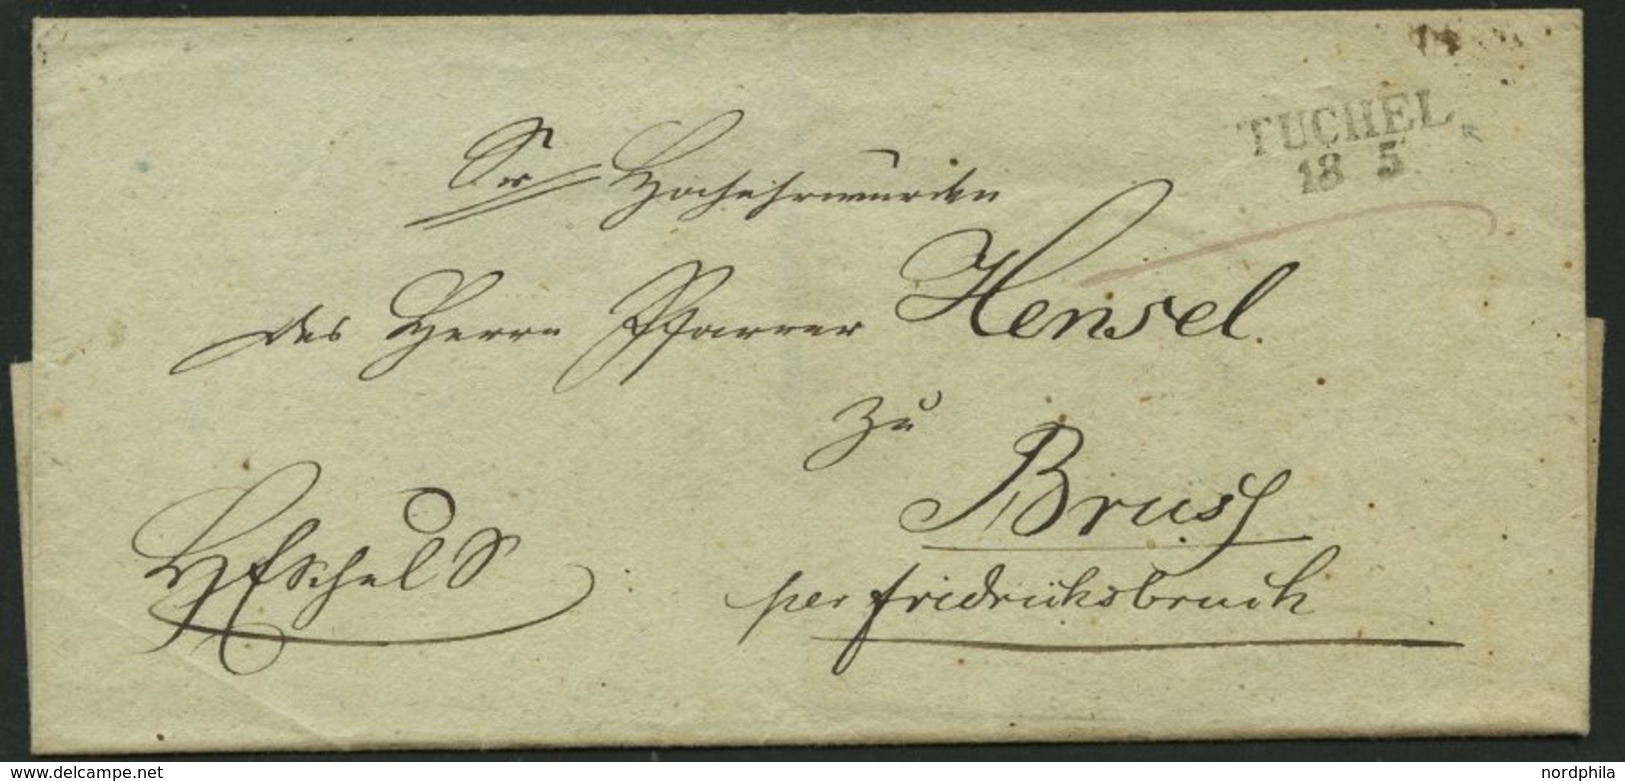 TUCHEL
18 5
Sr Hochehrwürden
des Herrn Pfarrer Hensel.
zu
Brusy
per fridrichsbruch
www.delcampe.net
nordphila